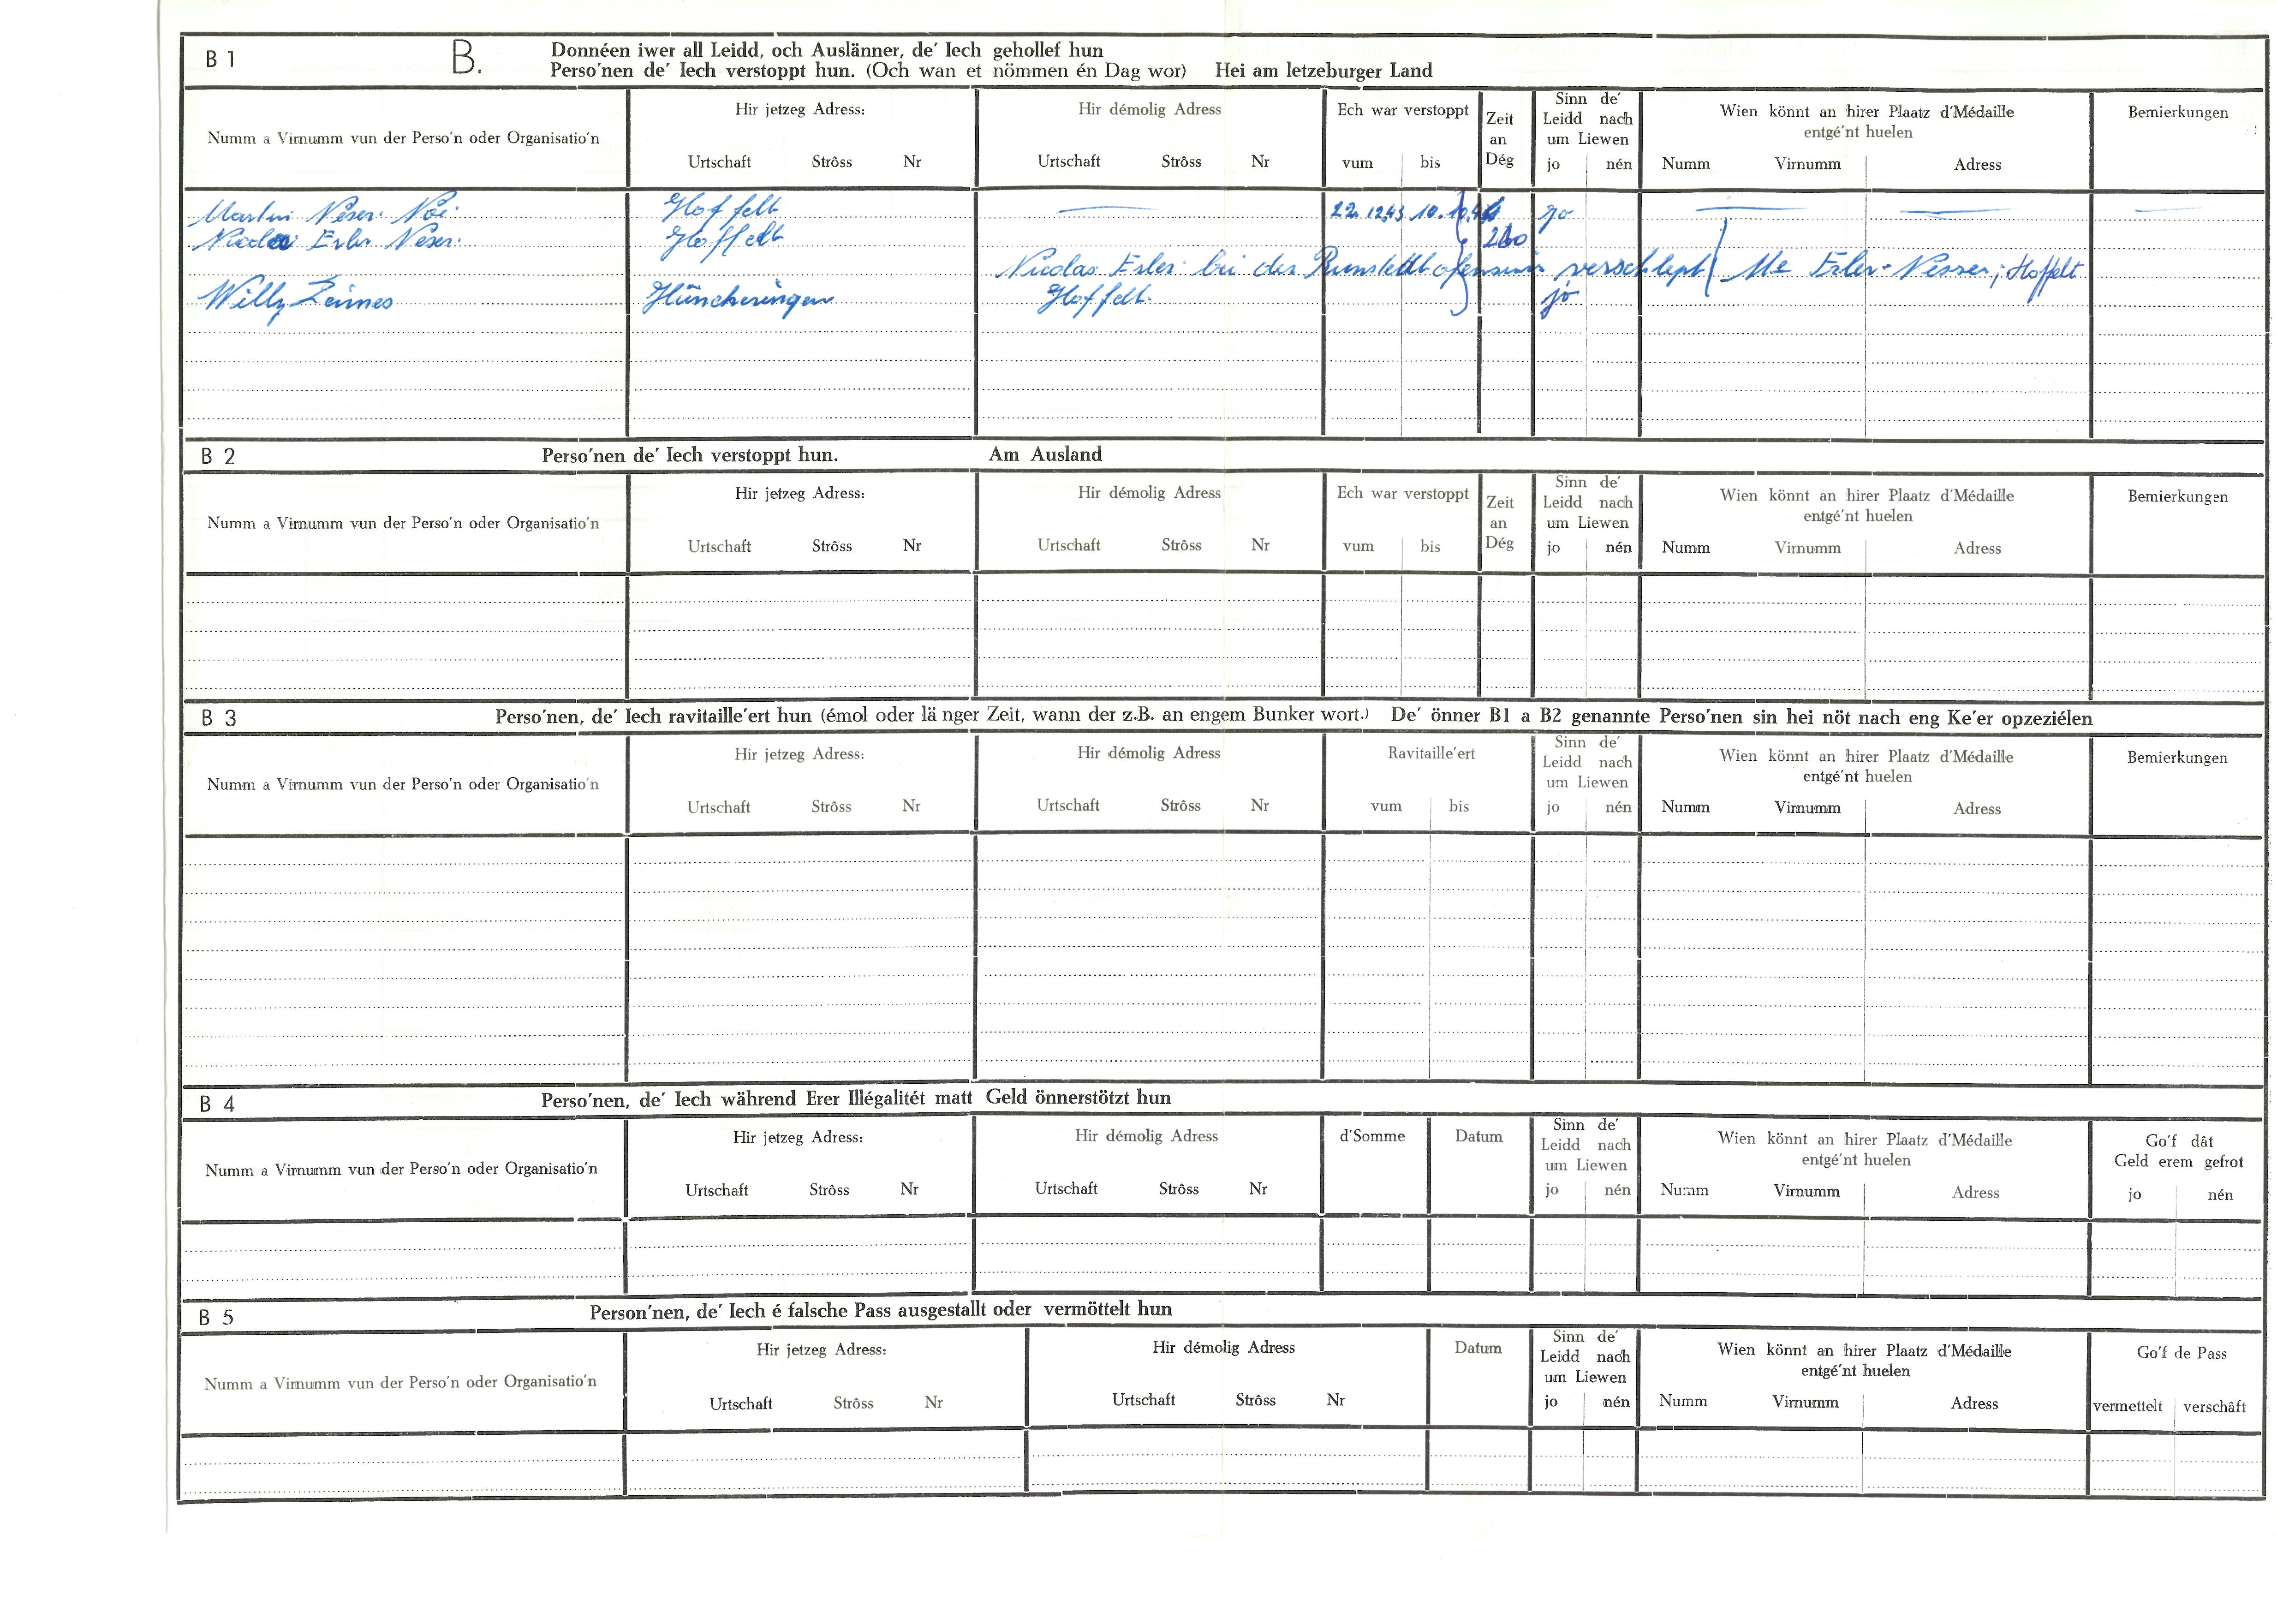 B 1 B. Donnéen iwer all Leidd, och Auslänner, de' Iech gehollef hun
Perso'nen de' Iech verstoppt hun. (Och wan et nömmen én Dag wor) Hei am letzeburger Land
Numm a Virnumm vun der Perso'n oder Organisatio'n
Hir jetzeg Adress:
Urtschaft Strôss Nr
Hir démolig Adress
Urtschaft Strôss Nr
Ech war verstoppt
vum bis
Zeit
an
Dég
Sinn de'
Leidd nach
um Liewen
jo nén
Wien könnt an hirer Plaatz d'Médaille
entgé'nt huelen
Numm Virnumm Adress
Bemierkungen
Neser Hoffelt 22.12.43 10. jo
Erler Neser. Hoffelt
Nicolas Erler bei der verschleppt Erler-Nesser, Hoffelt
Willy Hüncheringen Hoffelt. jo
B 2 Perso'nen de' Iech verstoppt hun. Am Ausland
Numm a Virnumm vun der Perso'n oder Organisatio'n
Hir jetzeg Adress:
Urtschaft Strôss Nr
Hir démolig Adress
Urtschaft Strôss Nr
Ech war verstoppt
vum bis
Zeit
an
Dég
Sinn de'
Leidd nach
um Liewen
jo nén
Wien könnt an hirer Plaatz d'Médaille
entgé'nt huelen
Numm Virnumm Adress
Bemierkungen
B 3 Perso'nen, de' Iech ravitaille'ert hun (émol oder länger Zeit, wann der z.B. an engem Bunker wort.) De' önner B1 a B2 genannte Perso'nen sin hei nöt nach eng Ke'er opzeziélen
Numm a Virnumm vun der Perso'n oder Organisatio'n
Hir jetzeg Adress:
Urtschaft Strôss Nr
Hir démolig Adress
Urtschaft Strôss Nr
Ravitaille'ert
vum bis
Sinn de'
Leidd nach
um Liewen
jo nén
Wien könnt an hirer Plaatz d'Médaille
entgé'nt huelen
Numm Virnumm Adress
Bemierkungen
B 4 Perso'nen, de' Iech während Erer Illégalitét matt Geld önnerstötzt hun
Numm a Virnumm vun der Perso'n oder Organisatio'n
Hir jetzeg Adress:
Urtschaft Strôss Nr
Hir démolig Adress
Urtschaft Strôss Nr
d'Somme
Datum
Sinn de'
Leidd nach
um Liewen
jo nén
Wien könnt an hirer Plaatz d'Médaille
entgé'nt huelen
Numm Virnumm Adress
Go'f dât
Geld erem gefrot
jo nén
B 5 Person'nen, de' Iech é falsche Pass ausgestallt oder vermöttelt hun
Numm a Virnumm vun der Perso'n oder Organisatio'n
Hir jetzeg Adress:
Urtschaft Strôss Nr
Hir démolig Adress
Urtschaft Strôss Nr
Datum
Sinn de'
Leidd nach
um Liewen
jo nén
Wien könnt an hirer Plaatz d'Médaille
entgé'nt huelen
Numm Virnumm Adress
Go'f de Pass
vermettelt verschâft